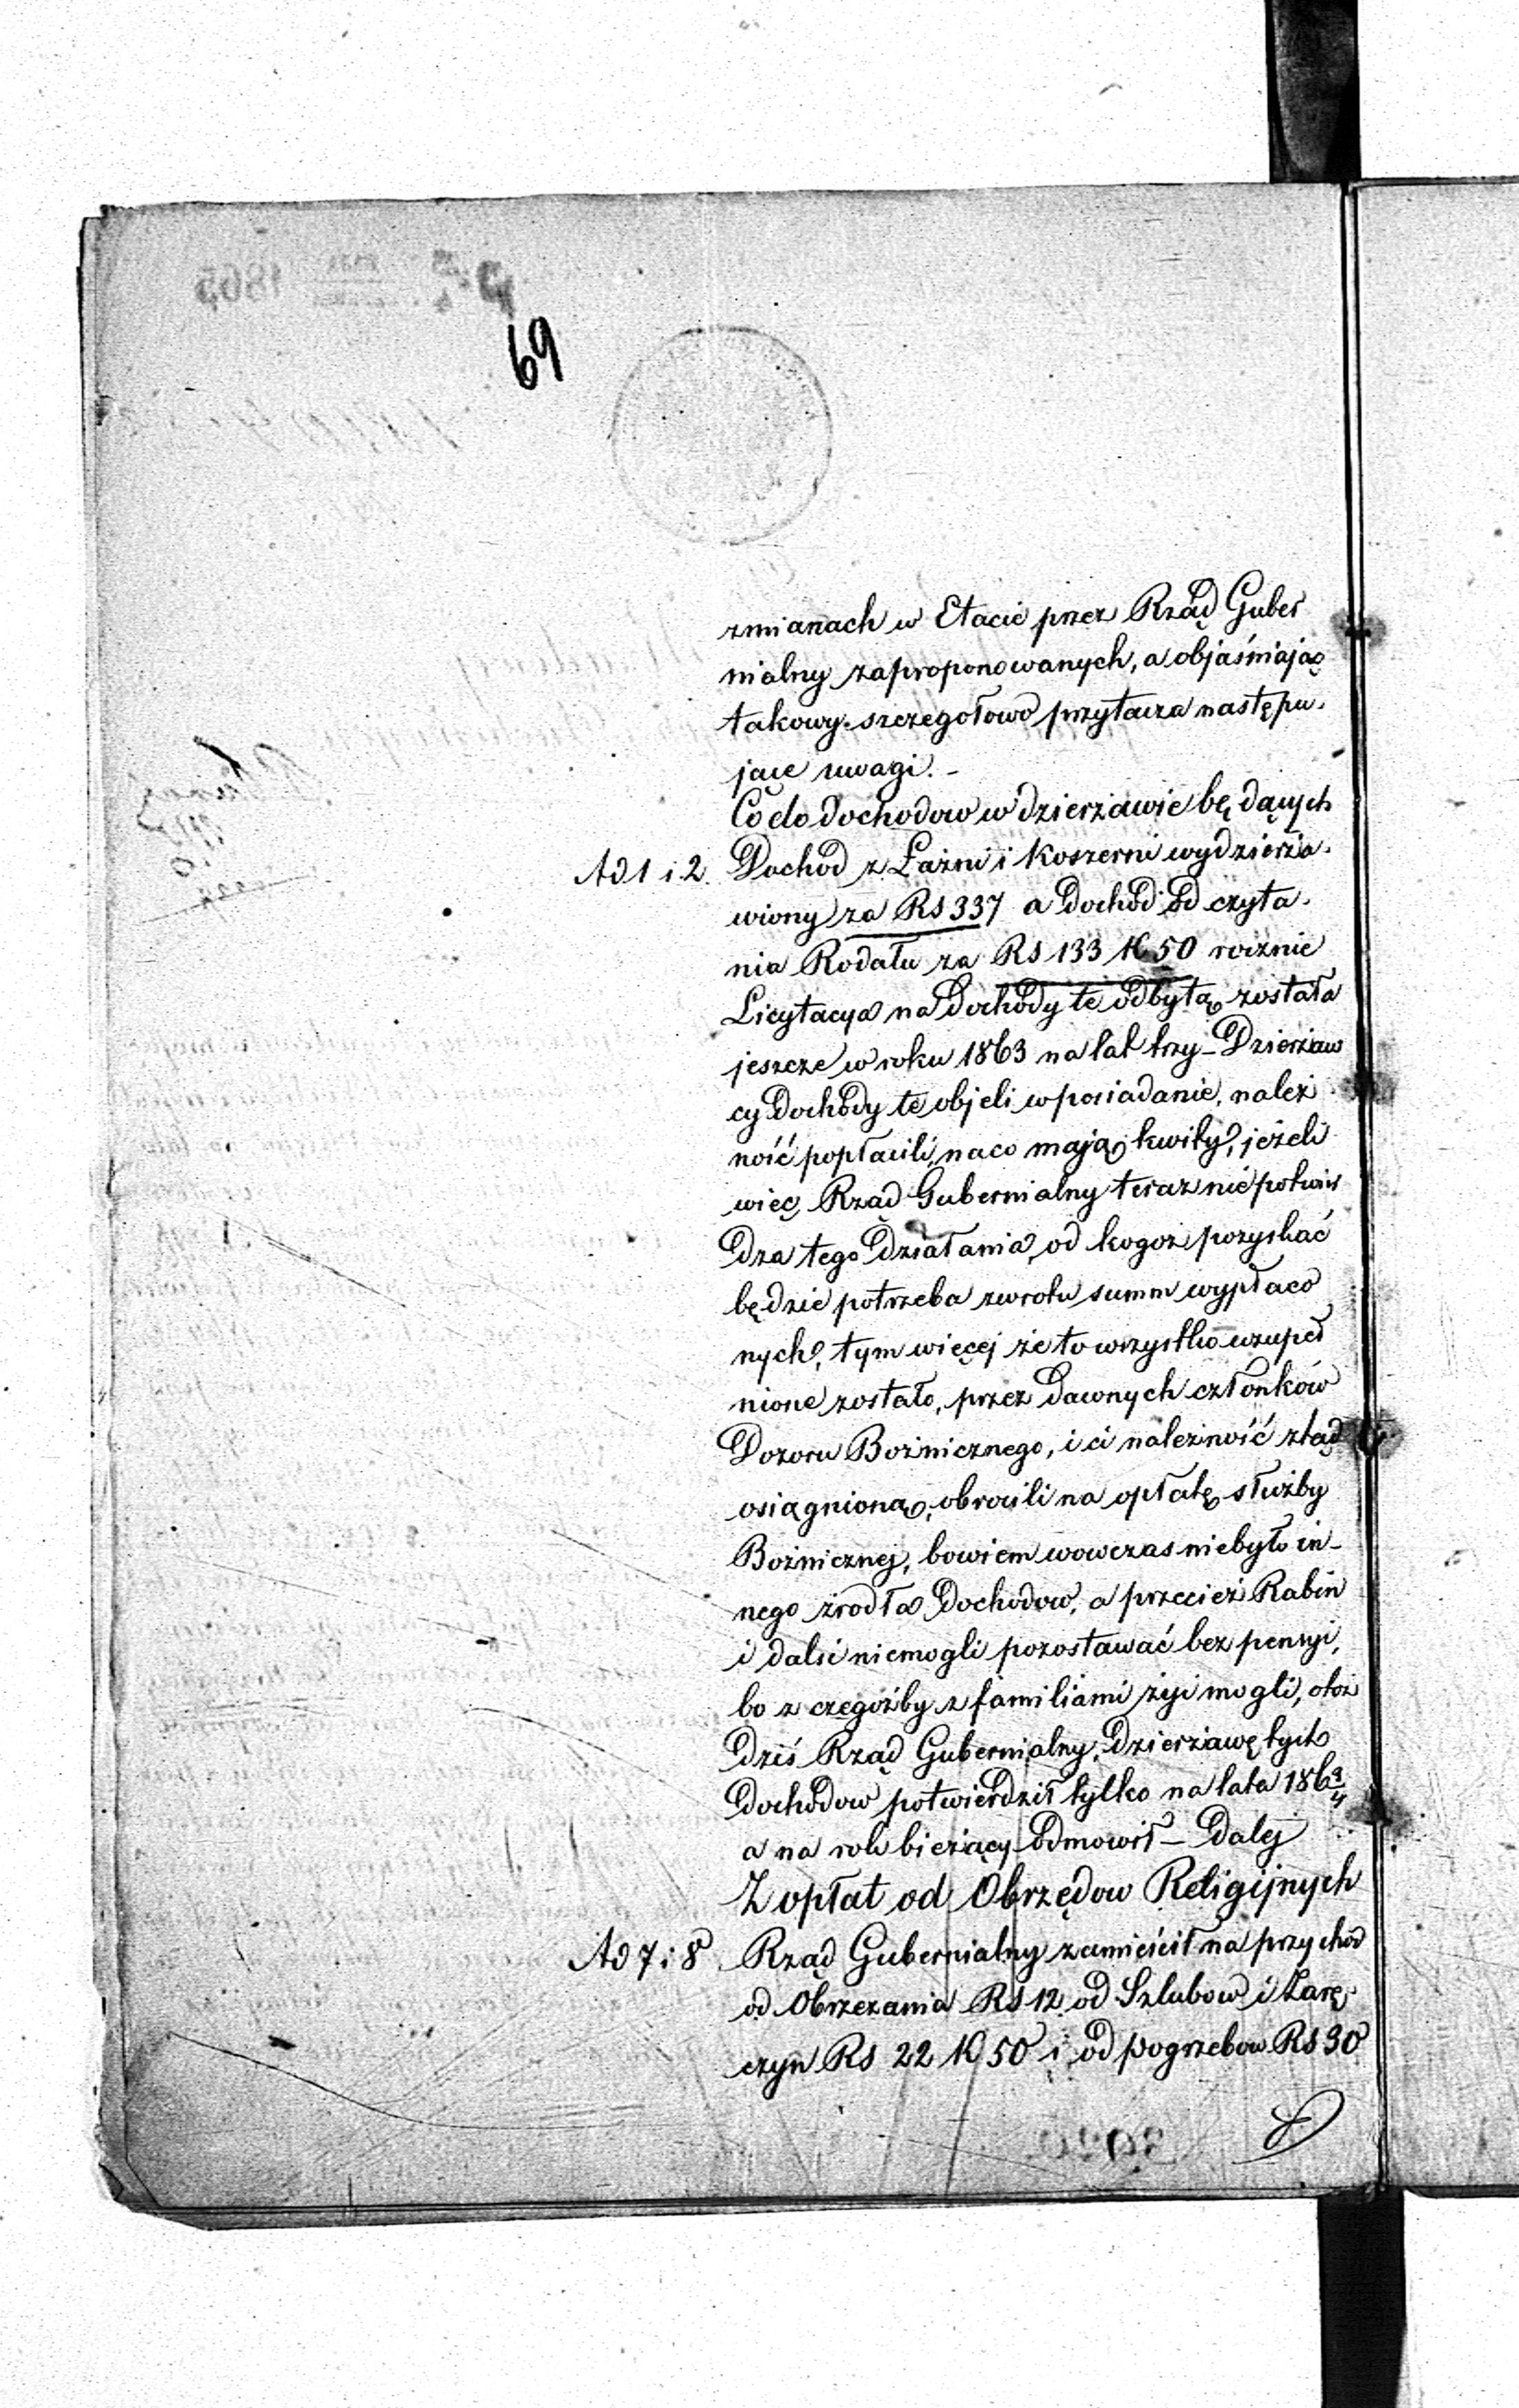 69
zmianach w Etacie przez Rząd Guber
nialny zaproponowanych, a objaśniając
takowy szczegołowo przytacza następu-
jące uwagi. -
Co do dochodow w dzierżawie będących
Ad 1 i 2. Dochod z Łaźni i Koszerni wydzierża-
wiony za RS 337 a dochod od czyta-
nia Rodału za RS 133 K 50 rocznie
Licytacya na dochody te odbytą została
jeszcze w roku 1863 na lat trzy - Dzierżaw
cy dochody te objeli w posiadanie, należ
ność popłacili, na co mają kwity, jeżeli
więc Rząd Gubernialny teraz nie potwier
dza tego działania, od kogoż pozyskać
będzie potrzeba zwrotu summ wypłaco
nych, tym więcej że to wszystko uzupeł
nione zostało, przez dawnych członków
Dozoru Bożnicznego, i ci należność ztąd
osiągnioną, obrocili na opłatę służby
Bożnicznej, bowiem wowczas niebyło in-
nego źrodła dochodow, a przecież Rabin
i dalsi niemogli pozostawać bez pensyi,
bo z czegoźby z familiami żyć mogli, otoż
dziś Rząd Gubernialny, dzierżawę tych
dochodow potwierdził tylko na lata 1863/4
a na rok bieżący odmowił - Dalej
Z opłat od Obrzędow Religijnych
Ad 7 i 8 Rząd Gubernialny zamieścił na przychod
od Obrzezania RS 12 od Szlubow i Zarę-
czyn RS 22 K 50 i od pogrzebow RS 30